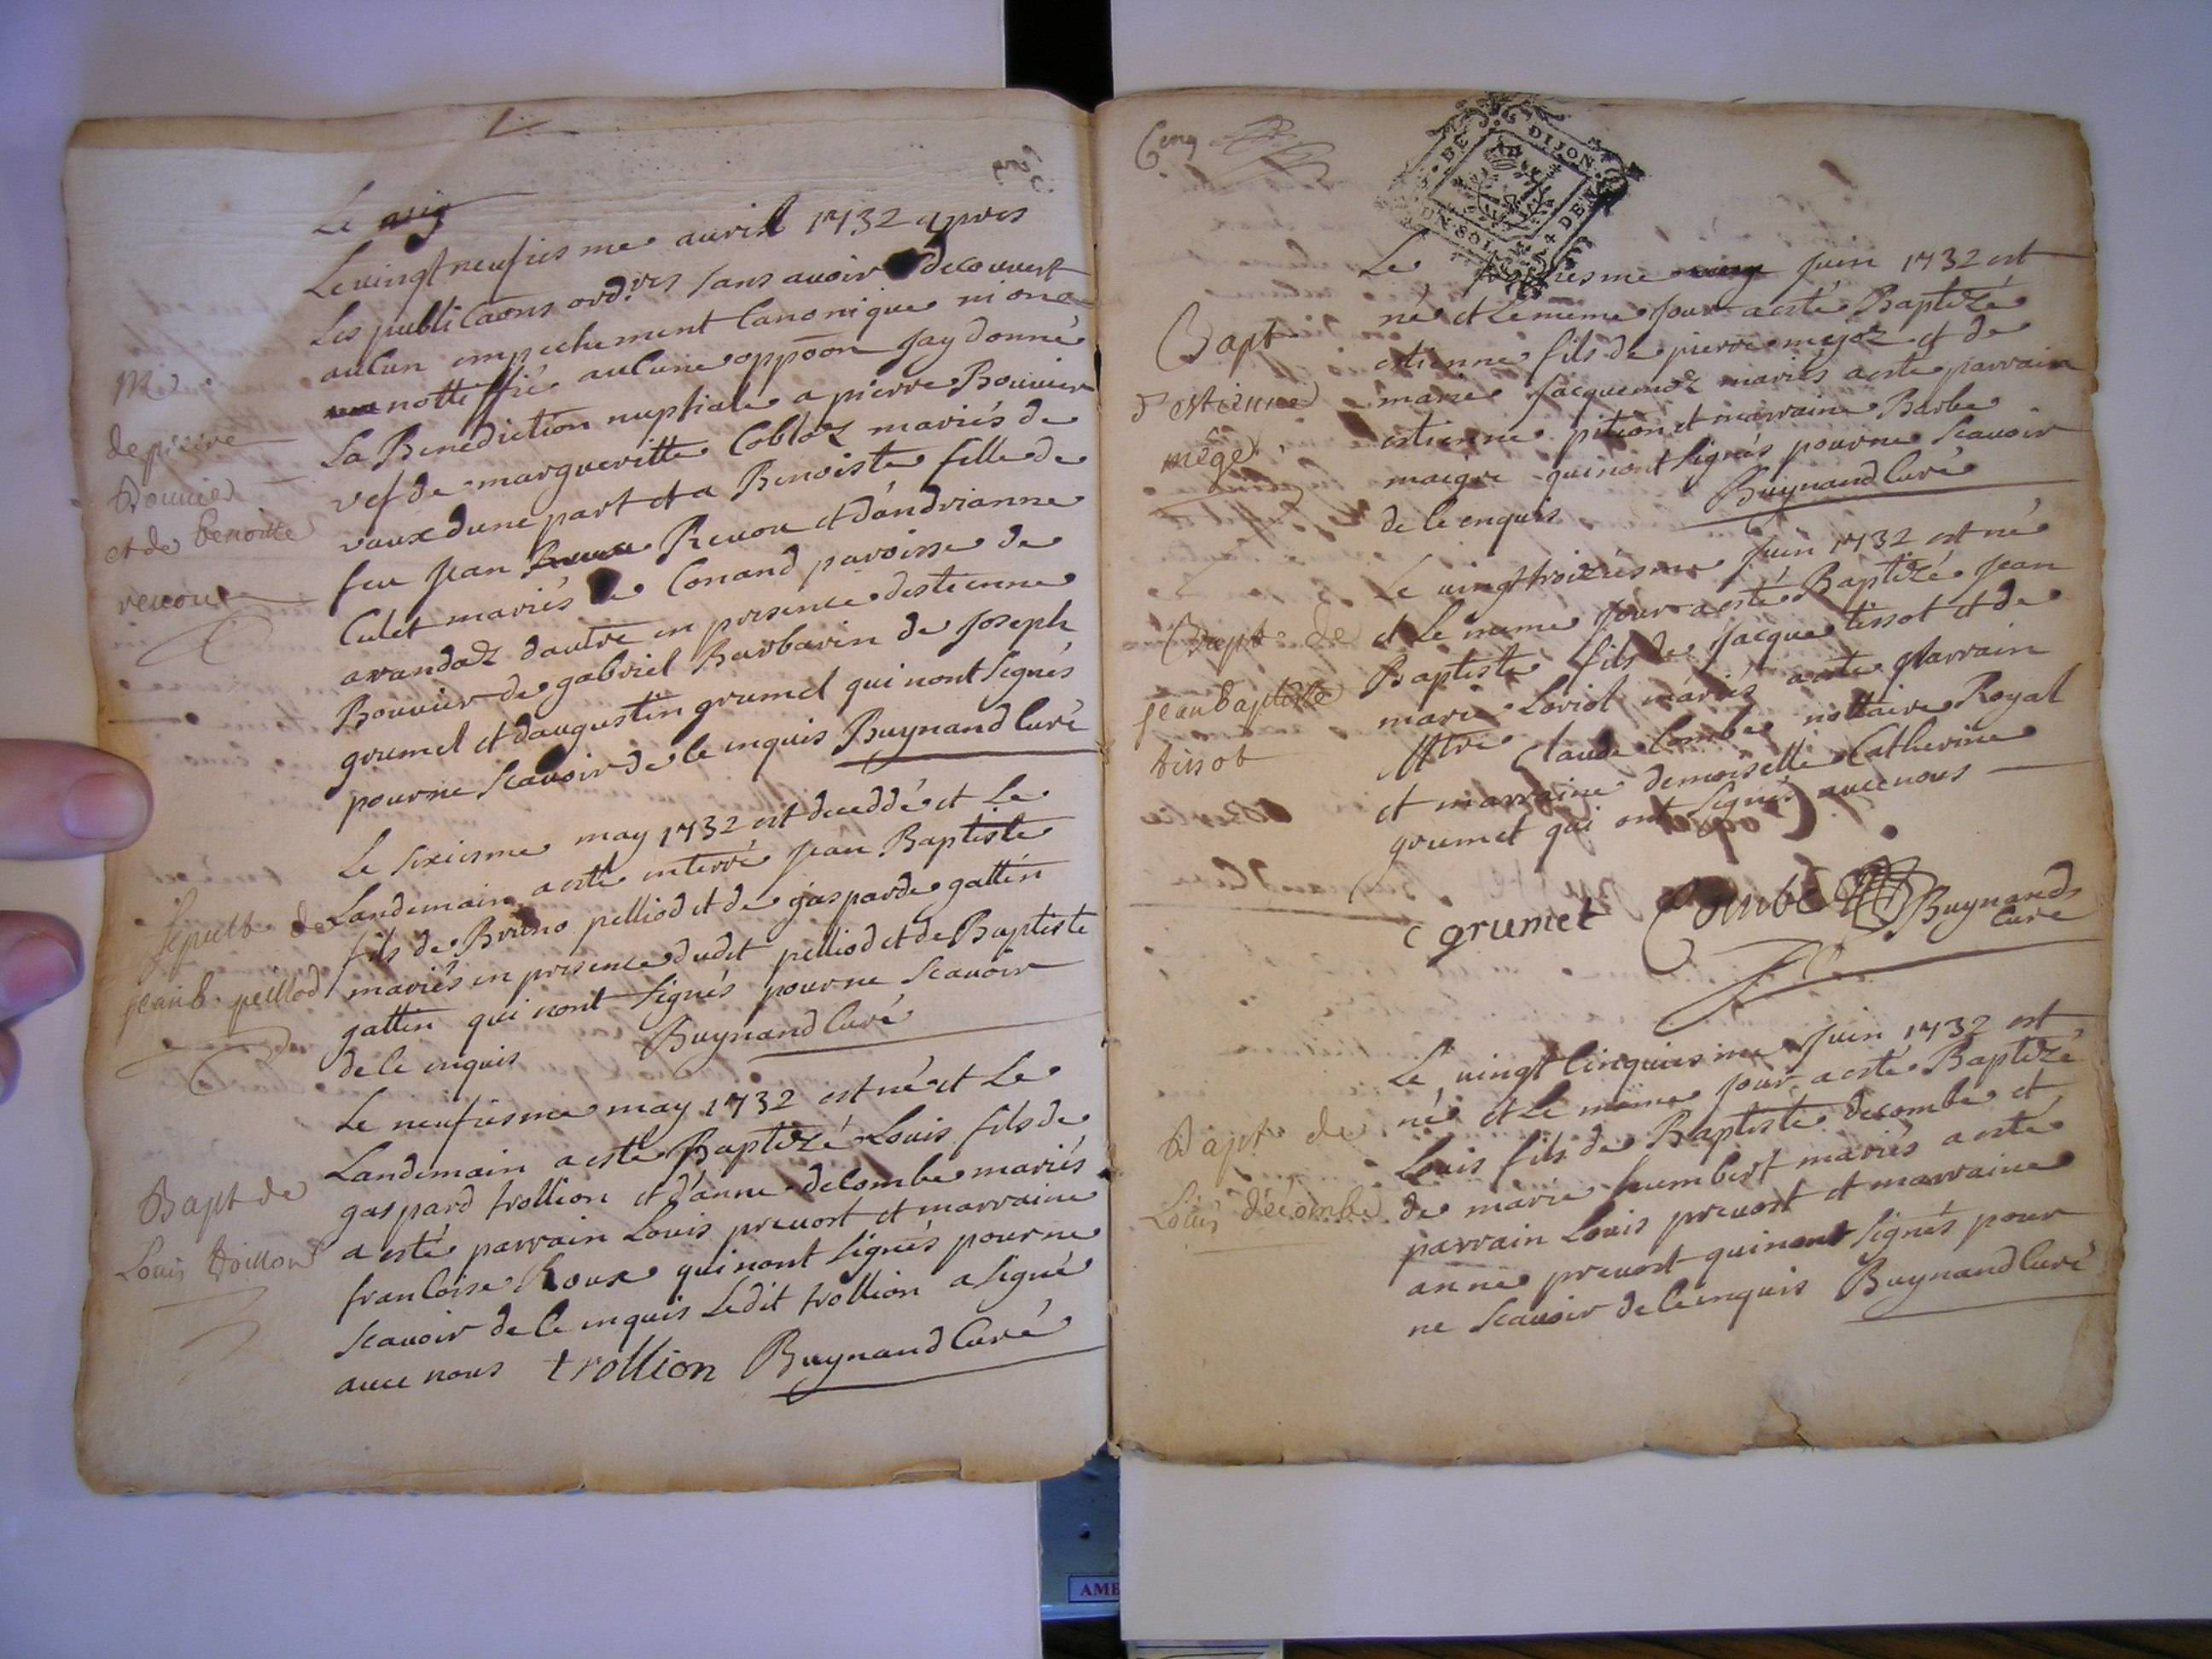 Le
Le vingt neufiesme auvril 1732 apres
Les publicaons ordres sans avoir decouvert
aucun empechement Canonique ni on a
nottiffié aucune oppōon jay donné
La Benediction nupsiale a pierre Bouvier
vef de margueritte Cobloz mariés de
vaux dune part et a Benoiste fille de
feu jean Revou et d'andrianne
Culet mariés de Conand paroisse de
arandaz dautre en presence destienne
Bouvier de gabriel Barbarin de joseph
grumel et daugustin grumel qui nont signés
pour ne scavoir de ce enquis Buynand Curé
Mar.
de pierre
Bouvier
et de benoitte
revou
Le sixiesme may 1732 est deceddé et Le
Landemain a esté enterré jean Baptiste
fils de Bruno pelliod et de gasparde gattin
mariés en presence dudit pelliod et de Baptiste
gattin qui nont signés pour ne scavoir
de ce enquis Buynand Curé
sepult. de
jean b. pelliod
Le neufiesme may 1732 est né et Le
Landemain a esté Baptizé Louis fils de
gaspard trollion et d'anne decombe mariés
a esté parrain Louis prevost et marraine
francoise Roux qui nont signés pour ne
scavoir de ce enquis Ledit trollion a signé
avec nous trollion Buynand Curé
Bapt de
Louis
Cinq
DE DIJON
UN SOL DEN
Le juin 1732 est
né et Le meme jour a esté Baptizé
estienne fils de pierre mejoz et de
marie jacquemoz mariés a esté parrain
estienne pition et marraine Barbe
maigre qui nont signés pour ne scavoir
de ce enquis Buynand Curé
Bapt
d'estienne
Le vingt troiziesme juin 1732 est né
et Le meme jour a esté Baptizé jean
Baptiste fils de jacque tissot et de
marie Loriol mariés a esté parrain
Mtre Claude Combe nottaire Royal
et marraine demoiselle Catherine
grumet qui ont signés avec nous
c grumet Combe Buynand
Curé
Bapt. de
jean baptiste
tissot
Le vingt cinquiesme juin 1732 est
né et Le meme jour a esté Baptizé
Louis fils de Baptiste decombe et
de marie humbert mariés a esté
parrain Louis prevost et marraine
anne prevost qui nont signés pour
ne scavoir de ce enquis Buynand Curé
Bapt. de
Louis decombe
AME